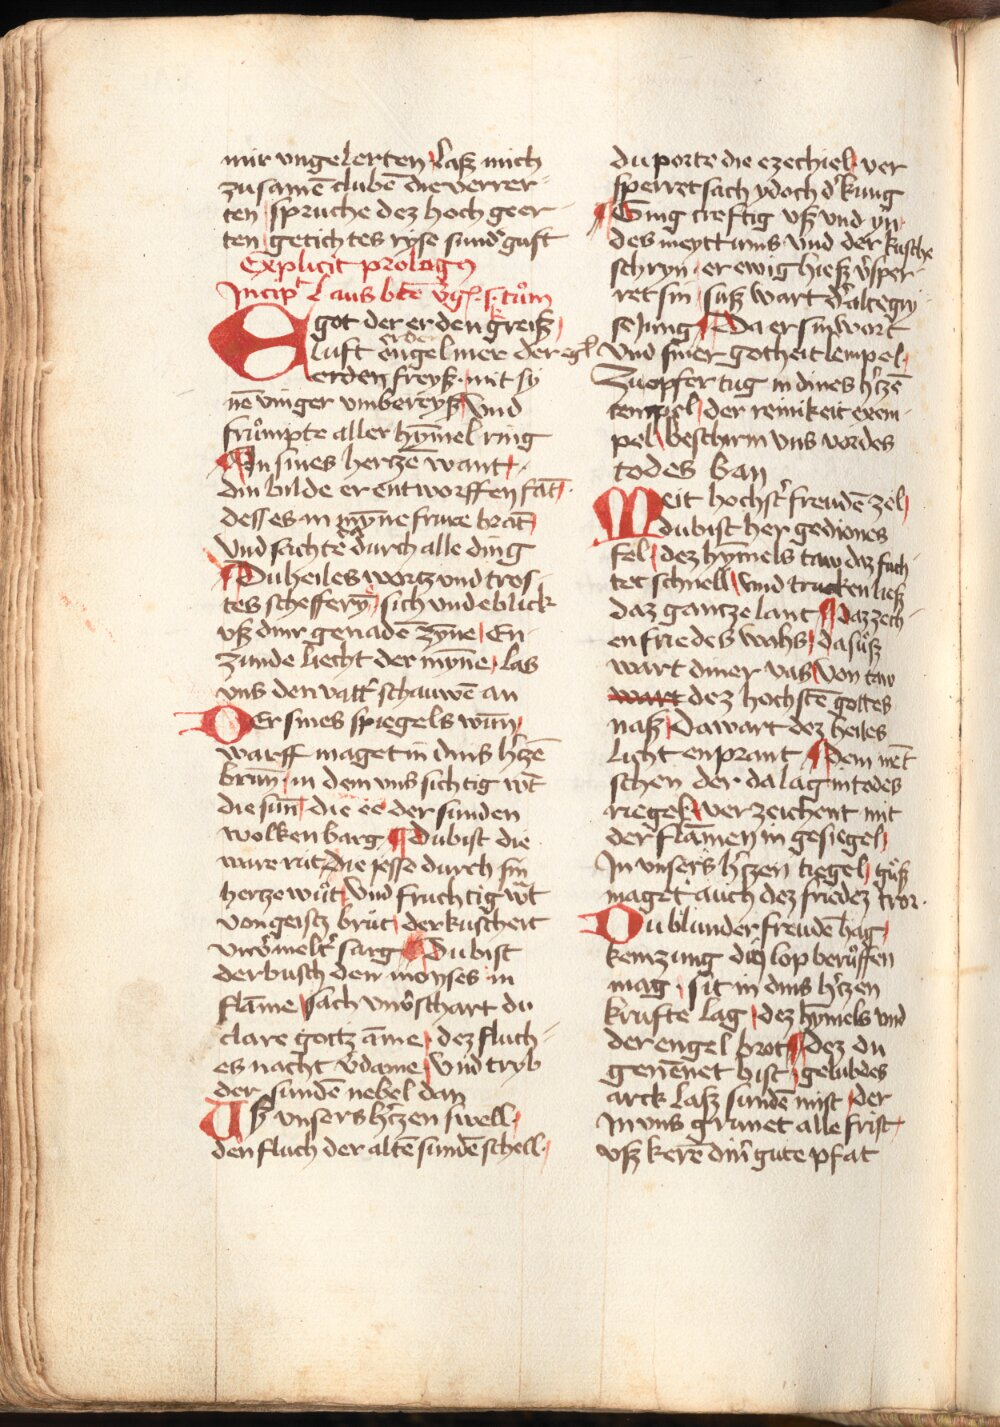 mir vngelerten laß mich
zusamē clubē die verrer-
ten spruche dez hoch geer-
ten getichtes ryse sundˀ guft
Explicit prologꝰ
Incipˀt laus bt̄e v̄gˢ. s. tům
E got der erden greiß
luft engel mer der
erden freyß mit sy
nē vinger vmbereyß Vnd
frůmpte aller hȳmel ring
An sines hertzē want
din bilde er entworffen
dess es in mȳne frure brāt
Vnd sachte durch alle ding
Du heiles wortz vnd tros-
tes scheffery sich vnd eblick
vß dinr genadē zyne En-
zunde liecht der mȳne las
vns den vattˀ schauwē an
Der sines spiegels wūn
warff maget in dins hˀtzē
brūn in dem vns sichtig wt̄
die sun die ee der sunden
wolken barg Du bist die
ware rut die jesse durch sin
hertze wůt Vnd fruchtig wt̄
von geistz brūt der kuscheit
vnv̄meltˀ sarg Du bist
der busch den moyses in
flāme sach vnv̄schart du
clare gottz āme dez fluch-
es nacht v̄dame Vnd tryb
der sundē nebel dan
Vß vnsers hˀtzen swell
den fluch der altē sundē schell
du porte die ezechiel ver
sperret sach ydoch dˀ kung
Ging creftig vß vnd yn
des meyttums vnd der kusche
schryn er ewig hieß v̄sper-
ret sin suß wart dˀ altegri
se jung Da er sin wort
Vnd siner gotheit tempel
Zu opfer tug in dines hˀtzē
tempel der reinikeit exem-
pel beschirm vns vor des
todes ban
Meit hochstˀ freudē zel
du bist her gediones
fel dez hȳmels taw daz fuch-
tet schnell Vnd trucken ließ
daz gantze lant Daz zech-
en friedes wahs da sůß
wart diner vas von taw
wart dez hochstē gottes
naß Da wart dez heiles
licht enprant Dem mēt
schen der da lag in todes
riegel verzeichent mit
der flāmen in gesiegel
In vnsers hˀtzen tiegel gůß
maget auch dez friedez tror
Du blunder freudē hag
kein zung din lop berůffen
mag sit in dins hˀtzen
krufte lag dez hȳmels vnd
der engel brot dez du
genennet bist gelubdes
arck laß sunden mist der
In vns grunet alle frist
vß kerē dinˀ gute pfat